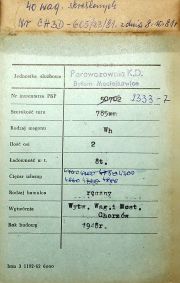 40 wag. skreślonych
Nr CHBD-605/23/81. z dnia 8.10.81r
Jednostka służbowa Parowozownia K.D.
Bytom Maciejkowice
Nr inwentarza PKP 50702 1333-Z
Szerokość toru 785mm
Rodzaj wagonu Wh
Ilość osi 2
Ładowność w t. 8t.
Ciężar własny
Rodzaj hamulca ręczny
Wytwórnia Wytw. Wag. i Most.
Chorzów
Rok budowy 1948r.